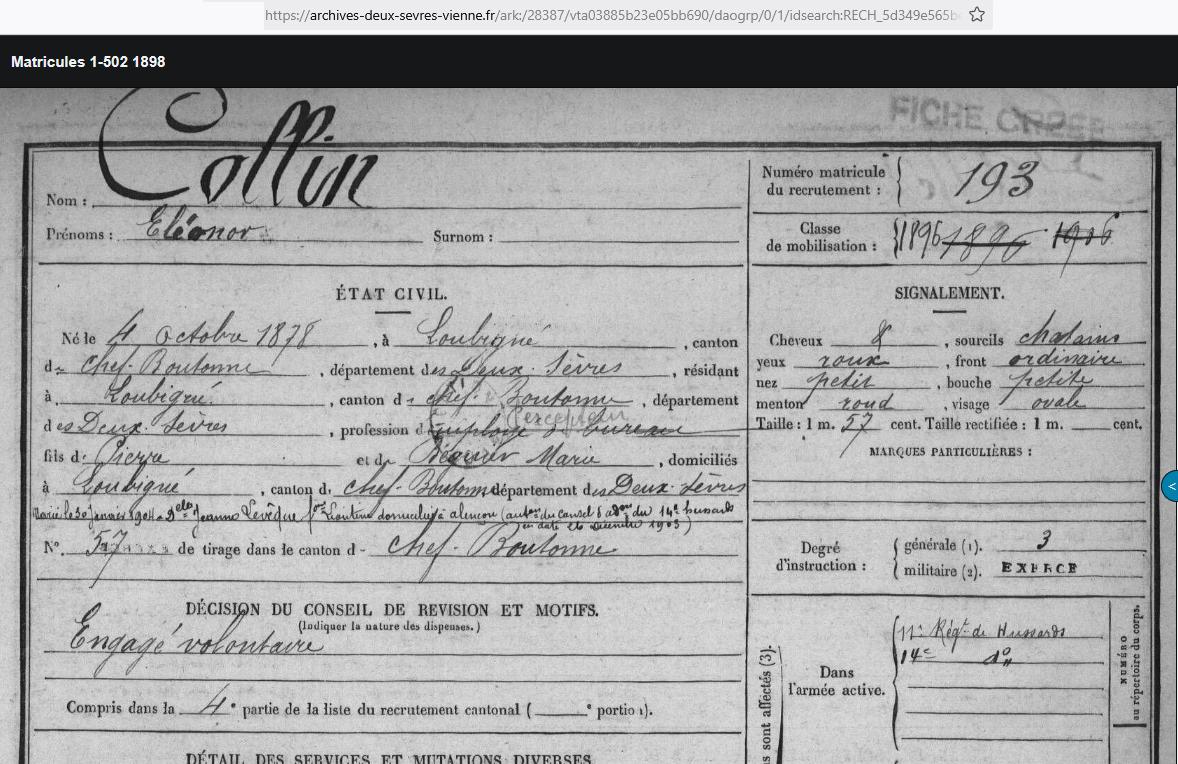 https://archives-deux-sevres-vienne.fr/ark:/28387/vta03885b23e05bb690/daogrp/0/1/idsearch:RECH_5d349e565b
Matricules 1-502 1898
FICHE
Nom : Collin
Prénoms : Eléonor Surnom :
Numéro matricule du recrutement : 193
Classe de mobilisation : 1896 1896 1906
ÉTAT CIVIL.
Né le 4 octobre 1878, à Loubigné, canton
de Chef-Boutonne, département des Deux-Sèvres, résidant
à Loubigné, canton d Chef-Boutonne, département
Percepteur
des Deux-Sèvres, profession d employé de bureau
fils d Pierre et de Marie, domiciliés
à Loubigné, canton d Chef-Boutonne département des Deux-Sèvres
Marié le 30 janvier 1904 à Delle Jeanne Levêque domiciliée à alençon (auton du conseil d'adon du 14e hussards
en date 26 Décembre 1903)
No. 57 de tirage dans le canton d Chef-Boutonne
DÉCISION DU CONSEIL DE REVISION ET MOTIFS.
(Indiquer la nature des dispenses.)
Engagé volontaire
Compris dans la 4e partie de la liste du recrutement cantonal ( e portion).
DÉTAIL DES SERVICES ET MUTATIONS DIVERSES
SIGNALEMENT.
Cheveux &, sourcils chatains
yeux roux, front ordinaire
nez petit, bouche petite
menton rond, visage ovale
Taille : 1 m. 57 cent. Taille rectifiée : 1 m. cent.
MARQUES PARTICULIÈRES :
Degré d'instruction :
générale (1). 3
militaire (2). EXERCÉ
Dans l'armée active.
11e Régt de Hussards
14e do
NUMÉRO
au répertoire du corps.
sont affectés (3).
<